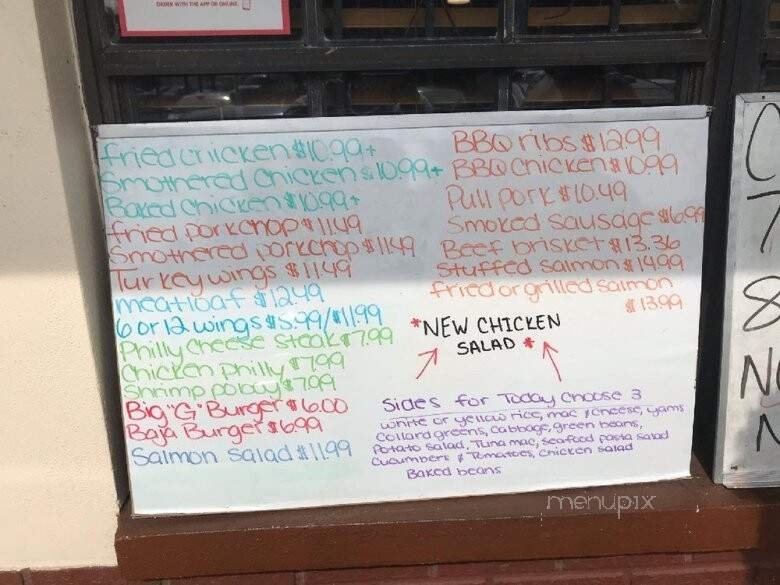 ORDER WITH THE APP OR ONLINE.
fried chicken $10.99+
Smothered Chicken $10.99+
Baked Chicken $10.99+
fried porkchop $11.49
Smothered porkchop $11.49
Turkey wings $11.49
meatloaf $12.49
6 or 12 wings $5.99/$11.99
Philly Cheese Steak $7.99
Chicken Philly $7.99
Shrimp poboy $7.99
Big "G" Burger $6.00
Baja Burger $6.99
Salmon Salad $11.99
BBQ ribs $12.99
BBQ Chicken $10.99
Pull Pork $10.49
Smoked Sausage $6.99
Beef brisket $13.36
Stuffed Salmon $14.99
fried or grilled Salmon
$13.99
*NEW CHICKEN
SALAD *
Sides for Today Choose 3
white or yellow rice, mac & cheese, yams
Collard greens, Cabbage, green beans,
Potato Salad, Tuna mac, Seafood pasta salad
Cucumbers & Tomatoes, Chicken Salad
Baked beans
menupix